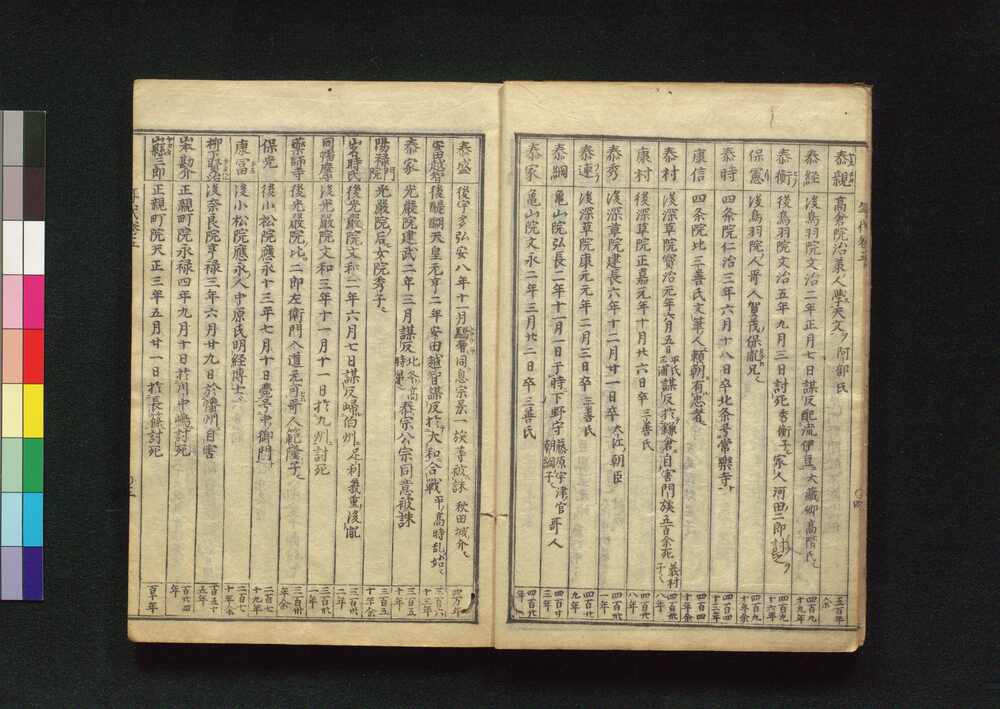 泰親 高倉院治兼人學天文ヲ 阿部氏 五百年余
泰経 後鳥羽院文治二年正月七日謀反配流伊豆ニ大藏卿高階氏 四百九十九年
泰衡 後鳥羽院文治五年九月三日討死秀衡子家人河田二郎討之 四百九十六年
保憲 後鳥羽院人哥人賀茂保胤兄 四百九十年余
泰時 四条院仁治三年六月十八日卒北条号常樂寺 四百四十三年
康信 四条院比三善氏文筆人頼朝有忠者 四百四十年余
泰村 後深草院寶治元年六月五日平氏三浦謀反於鎌倉自害門族五百余死 義村子 四百卅八年
康村 後深草院正嘉元年十月廿六日卒 三善氏 四百廿八年
泰秀 後深草院建長六年十二月廿一日卒 大江朝臣 四百卅一年
泰連 後深草院康元元年二月三日卒 三善氏 四百廿九年
泰綱 亀山院弘長二年十一月一日于時下野守 藤原宇津宮哥人朝綱子 四百廿三年
泰家 亀山院文永二年三月廿二日卒 三善氏 四百廿年
泰盛 後宇多弘安八年十一月騒層同息宗景一族等被誅 秋田城介 四百年
安田越智 後醍醐天皇元亨二年安田越智謀反於大和合戰 平高時乱始 三百六十三年
泰家 光嚴院建武二年三月謀反 北条高時弟 泰宗公宗同意被誅 三百五十年
陽禄門院 光嚴院后女院秀子 三百五十年余
山名時氏 後光嚴院文和二年六月七日謀反帰伯州足利義重後胤 三百卅二年
同播磨 後光嚴院文和三年十一月十一日於九州討死 三百卅一年
藥師寺 後光嚴院比二郎左衛門入道元可哥人範隆子 三百卅年余
保光 後小松院應永十三年七月十日薨号中御門 二百七十九年
康冨 後小松院應永人中原氏明経博士 二百七十年余
柳下賢治 後奈良院享禄三年六月廿九日於播州自害 百五十五年
山本勘介 正親町院永禄四年九月十日於川中嶋討死 百廿四年
山縣三郎 正親町院天正三年五月廿一日於長篠討死 百十年